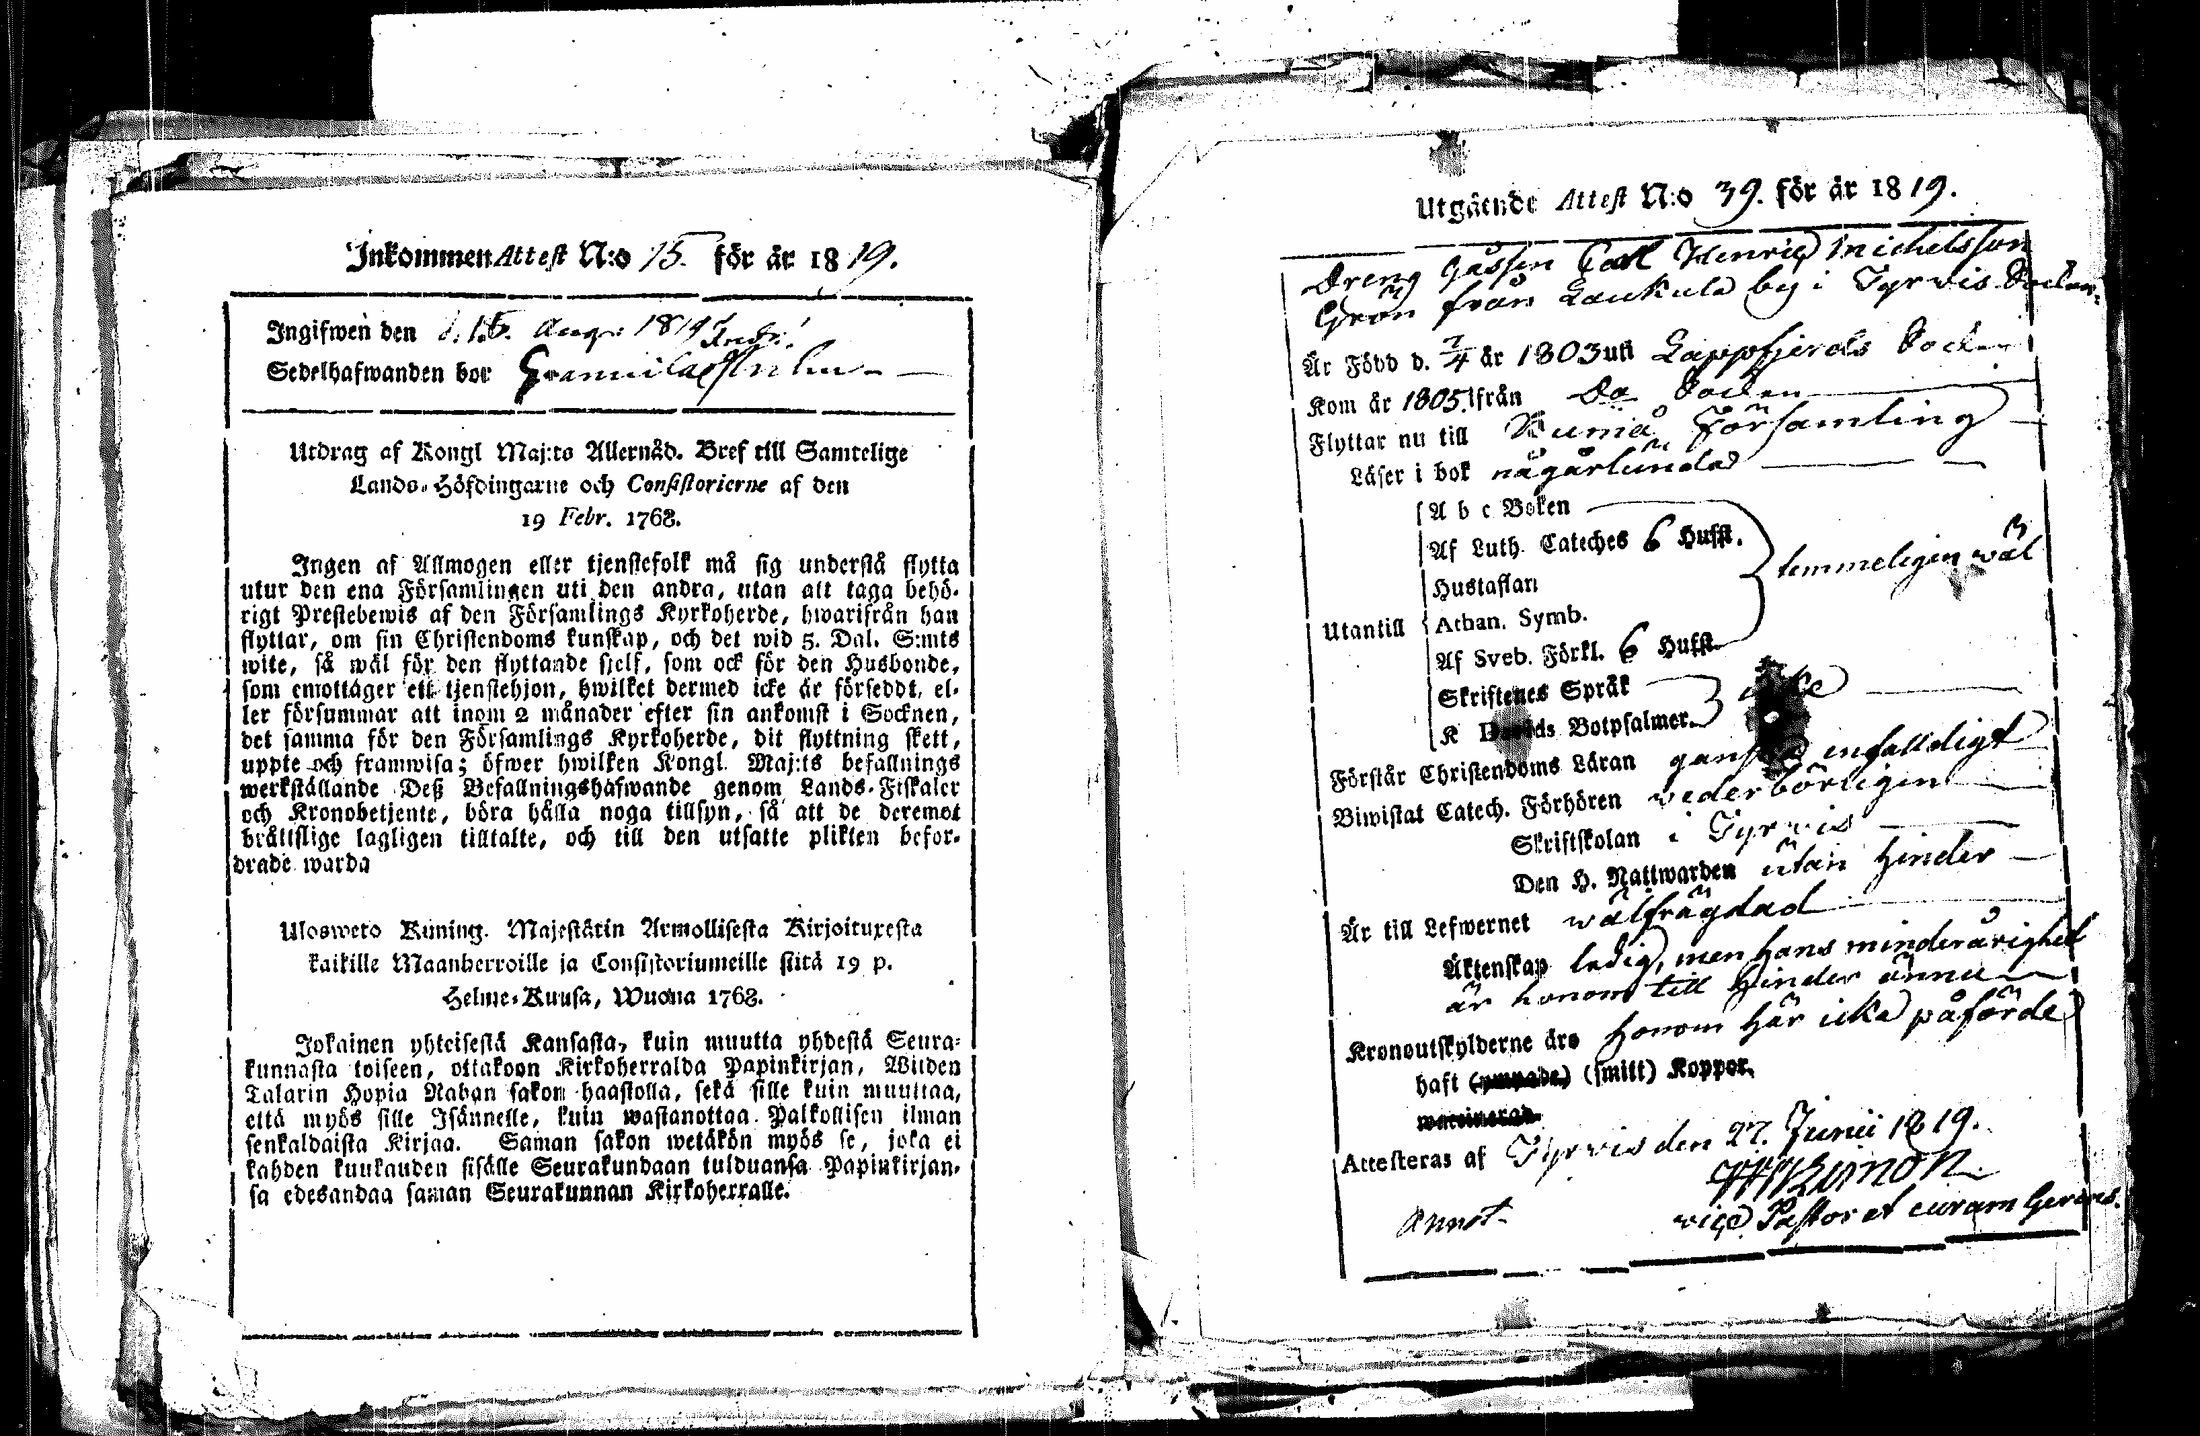 Inkommen Attest N:o 15. för år 1819.
Ingifwen den d. 15. Aug: 1819
Sedelhafwanden bor
Utdrag af Kongl Maj:ts Allernåd. Bref till Samtelige
Lands-Höfdingarne och Consistorierne af den
19 Febr. 1768.
Ingen af Allmogen eller tjenstefolk må sig understå flytta
utur den ena Församlingen uti den andra, utan att taga behö-
rigt Prestebewis af den Församlings Kyrkoherde, hwarifrån han
flyttar, om sin Christendoms kunskap, och det wid 5. Dal. S:mts
wite, så wäl för den flyttande sjelf, som ock för den Husbonde,
som emottager ett tjenstehjon, hwilket dermed icke är försedt, el-
ler försummar att inom 2 månader efter sin ankomst i Socknen,
det samma för den Församlings Kyrkoherde, dit flyttning skett,
uppte och framwisa; öfwer hwilken Kongl. Maj:ts befallnings
werkställande Deß Befallningshafwande genom Lands-Fiskaler
och Kronobetjente, böra hålla noga tillsyn, så att de deremot
bråttslige lagligen tilltalte, och till den utsatte plikten befor-
drade warda
Ulosweto Kuning. Majestätin Armollisesta Kirjoituxesta
kaikille Maanherroille ja Consistoriumeille siitä 19 p.
Helme-Kuusa, Wuona 1768.
Jokainen yhteisestä Kansasta, kuin muutta yhdestä Seura-
kunnasta toiseen, ottakoon Kirkoherralda Papinkirjan, Wiiden
Talarin Hopia Rahan sakon haastolla, sekä sille kuin muuttaa,
että myös sille Isännelle, kuin wastanottaa Palkollisen ilman
senkaldaista Kirjaa. Saman sakon wetäkön myös se, joka ei
kahden kuukauden sisälle Seurakundaan tulduansa Papinkirjan-
sa edesandaa saman Seurakunnan Kirkoherralle.
Utgående Attest N:o 39. för år 1819.
Dreng Gåssen Carl Henric Michelsson
Grön från Laukula by i Tyrvis Socken
Är Född d. 7/4 år 1803 uti Lappfjerds Socken
Kom år 1805. ifrån Do Socken
Flyttar nu till Kumå Församling
Läser i bok någårlunda
A b c Boken
Af Luth. Cateches 6 Hufst.
temmeligen wäl
Hustaflan
Utantill
Athan. Symb.
Af Sveb. Förkl. 6 Hufst.
Skriftenes Språk
K Davids Botpsalmer.
Förstår Christendoms Läran enfalldigt
Biwistat Catech. Förhören wederbörligen
Skriftskolan i Tyrvis
Den H. Nattwarden utan hinder
Är till Lefwernet wälfrägdad
Äktenskap ledig, men hans minderårighet
är honom till hinder ännu
Kronoutskylderne äro honom här icke påförde
haft (ympade) (smitt) Koppor.
waccinerad.
Attesteras af Tyrvis den 27. Junii 1819.
Annot.
vice Pastor et curam Gerens.